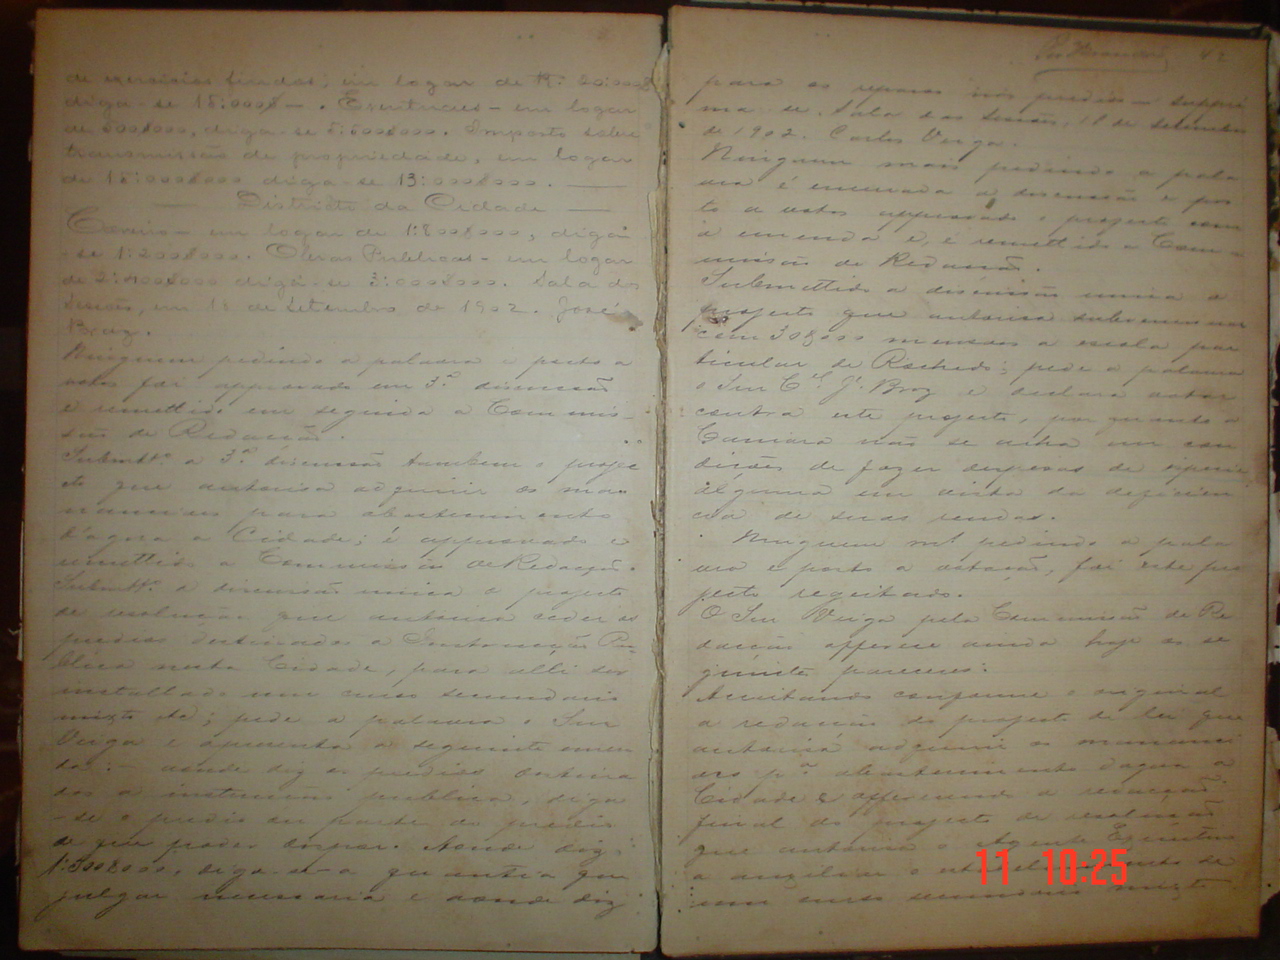 de exercicios findos; em logar de R.s 20:000$
diga-se 15:000$ — . Eventuaes - em logar
de 500$000, diga-se 5:500$000. Imposto sobre
transmissão de propriedade, em logar
de 15:000$000 diga-se 13:000$000. —
— Districto da Cidade —
em logar de 1:800$000, diga
-se 1:200$000. Obras Publicas - em logar
de 2:400$000 diga-se 3:000$000. Sala das
Sessões, em 18 de Setembro de 1902. José
Braz.
Ninguem pedindo a palavra e posto a
votos foi approvado em 3.ª discussão
e remettido em seguida a Commis-
são de Redacção.
Submtt.º a 3.ª discussão tambem o projec
to que autorisa adquirir os ma-
nanciaes para abastecimento
d'agua a Cidade; é approvado e
remettido a Commissão de Redacção.
Submtt.º a discussão unica o projecto
de resolução que autorisa ceder os
predios destinados a Instrucção Pu-
blica nesta Cidade, para alli ser
installado um curso secundario
mixto &; pede a palavra o Snr
Veiga e apresenta a seguinte emen
da: - aonde diz os predios destina
dos a instrucção publica, diga
-se o predio ou parte do predio
de que poder dispor. Aonde diz
1:500$000, diga-se a quantia que
julgar necessaria e aonde diz
42
para os reparos nos predios - suppri
ma-se. Sala das Sessões, 18 de Setembro
de 1902. Carlos Veiga.
Ninguem mais pedindo a pala
vra é encerrada a discussão e pos
to a votos approvado o projecto com
a emenda e, é remettido a Com-
missão de Redacção.
Submettido a discussão unica o
projecto que autorisa subvencionar
com 30$000 mensaes a escola par
ticular de Rochedo; pede a palavra
o Snr C.el J.e Braz e declara votar
contra este projecto, por quanto a
Camara não se acha em con
dições de fazer despesas de especie
alguma em vista da deficien
cia de suas rendas.
Ninguem m.s pedindo a pala
vra e posto a votação, foi este pro
jecto regeitado.
O Snr Veiga pela Commissão de Re
dacção offerece ainda hoje os se
guintes pareceres:
Acceitando conforme o original
a redacção do projecto de lei que
autorisa adquirir os mananci
aes p.ª abastecimento d'agua a
Cidade & offerecendo a redacção
final do projecto de resolução
que autorisa o Agente Executivo
a auxiliar o de
um curso secundario mixto
11 10:25